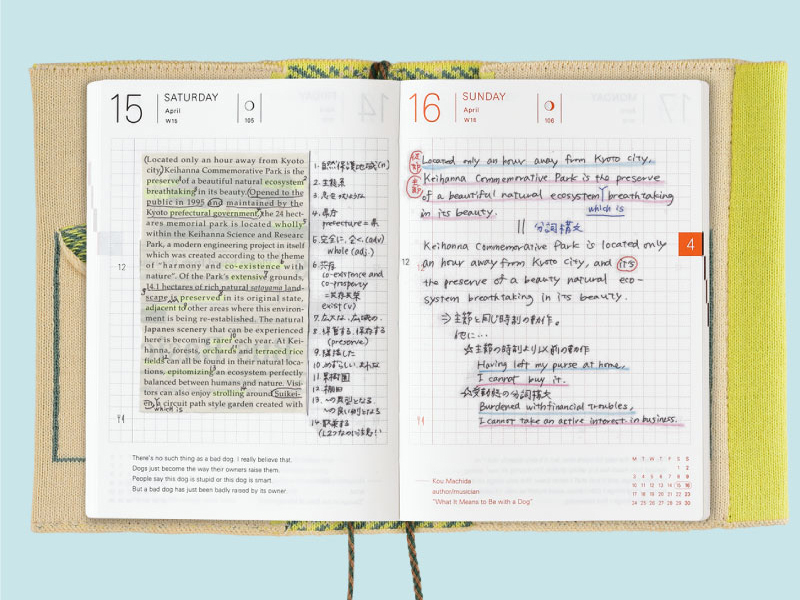 15
SATURDAY
April
W15
105
(Located only an hour away from Kyoto
city,) Keihanna Commemorative Park is the
preserve1 of a beautiful natural ecosystem2
breathtaking3 in its beauty. Opened to the
public in 1995 and maintained by the
Kyoto prefectural government,4 the 24 hect-
ares memorial park is located wholly5
within the Keihanna Science and Researc
Park, a modern engineering project in itself
which was created according to the theme
of "harmony and co-existence6 with
nature". Of the Park's extensive7 grounds,
14.1 hectares of rich natural satoyama land-
scape is preserved8 in its original state,
adjacent to9 other areas where this environ-
ment is being re-established. The natural
Japanes scenery that can be experienced
here is becoming rarer10 each year. At Kei-
hanna, forests, orchards11 and terraced rice
fields12 can all be found in their natural loca-
tions, epitomizing13 an ecosystem perfectly
balanced between humans and nature. Visi-
tors can also enjoy strolling around14 Suikei-
en, a circuit path style garden created with
which is
1. 自然保護地域(n)
2. 生態系
4. 県庁
prefecture = 県
5. 完全に、全く(adv)
whole (adj.)
6. 共存
co-existence and
co-prosperity
= 共存共栄
exist (v)
7. 広大な、広域の
8. 保管する、保存する
(preserve)
9. 隣接した
10. めずらしい、まれな
11. 果樹園
12. 棚田
13. 〜の典型となる、
〜の良い例となる
14. 散策する
12
There's no such thing as a bad dog. I really believe that.
Dogs just become the way their owners raise them.
People say this dog is stupid or this dog is smart.
But a bad dog has just been badly raised by its owner.
16
SUNDAY
April
W15
106
Located only an hour away from Kyoto city,
主節
Keihanna Commemorative Park is the preserve
of a beautiful natural ecosystem breathtaking
which is
in its beauty.
分詞構文
Keihanna Commemorative Park is located only
an hour away from Kyoto city, and it's
the preserve of a beauty natural eco-
system breathtaking in its beauty.
⇒主節と同じ時刻の動作。
他に…
☆主節の時刻より以前の動作
Having left my purse at home,
I cannot buy it.
☆受動態の分詞構文
Burdened with financial troubles,
I cannot take an active interest in business.
4
12
Kou Machida
author/musician
"What It Means to Be with a Dog"
M T W T F S S
1 2
3 4 5 6 7 8 9
10 11 12 13 14 15 16
17 18 19 20 21 22 23
24 25 26 27 28 29 30